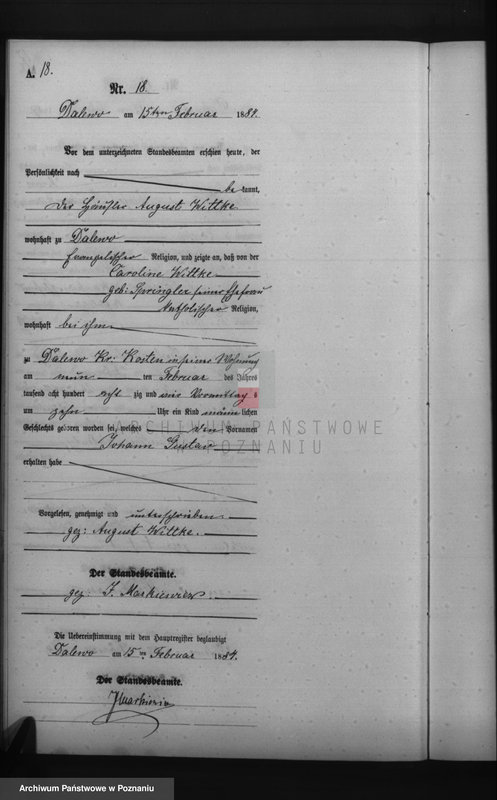 A. 18.
Nr. 18
Dalewo am 15ten Februar 1884.
Vor dem unterzeichneten Standesbeamten erschien heute, der
Persönlichkeit nach
be kannt,
der Häusler August Wittke
wohnhaft zu Dalewo
evangelischer Religion, und zeigte an, daß von der
Caroline Wittke
geb: Springler seiner Ehefrau
katholischer Religion,
wohnhaft bei ihm
zu Dalewo Kr: Kosten in seiner Wohnung
am neun ten Februar des Jahres
tausend acht hundert acht zig und vier Vormittag s
um zehn Uhr ein Kind männ lichen
Geschlechts geboren worden sei, welches den Vornamen
Johann Gustav
erhalten habe
ARCHIWUM PAŃSTWOWE
POZNANIU
Vorgelesen, genehmigt und unterschrieben
gez: August Wittke.
Der Standesbeamte.
gez: J. Markiewicz.
Die Uebereinstimmung mit dem Hauptregister beglaubigt
Dalewo am 15 ten Februar 1884.
Der Standesbeamte.
Archiwum Państwowe w Poznaniu